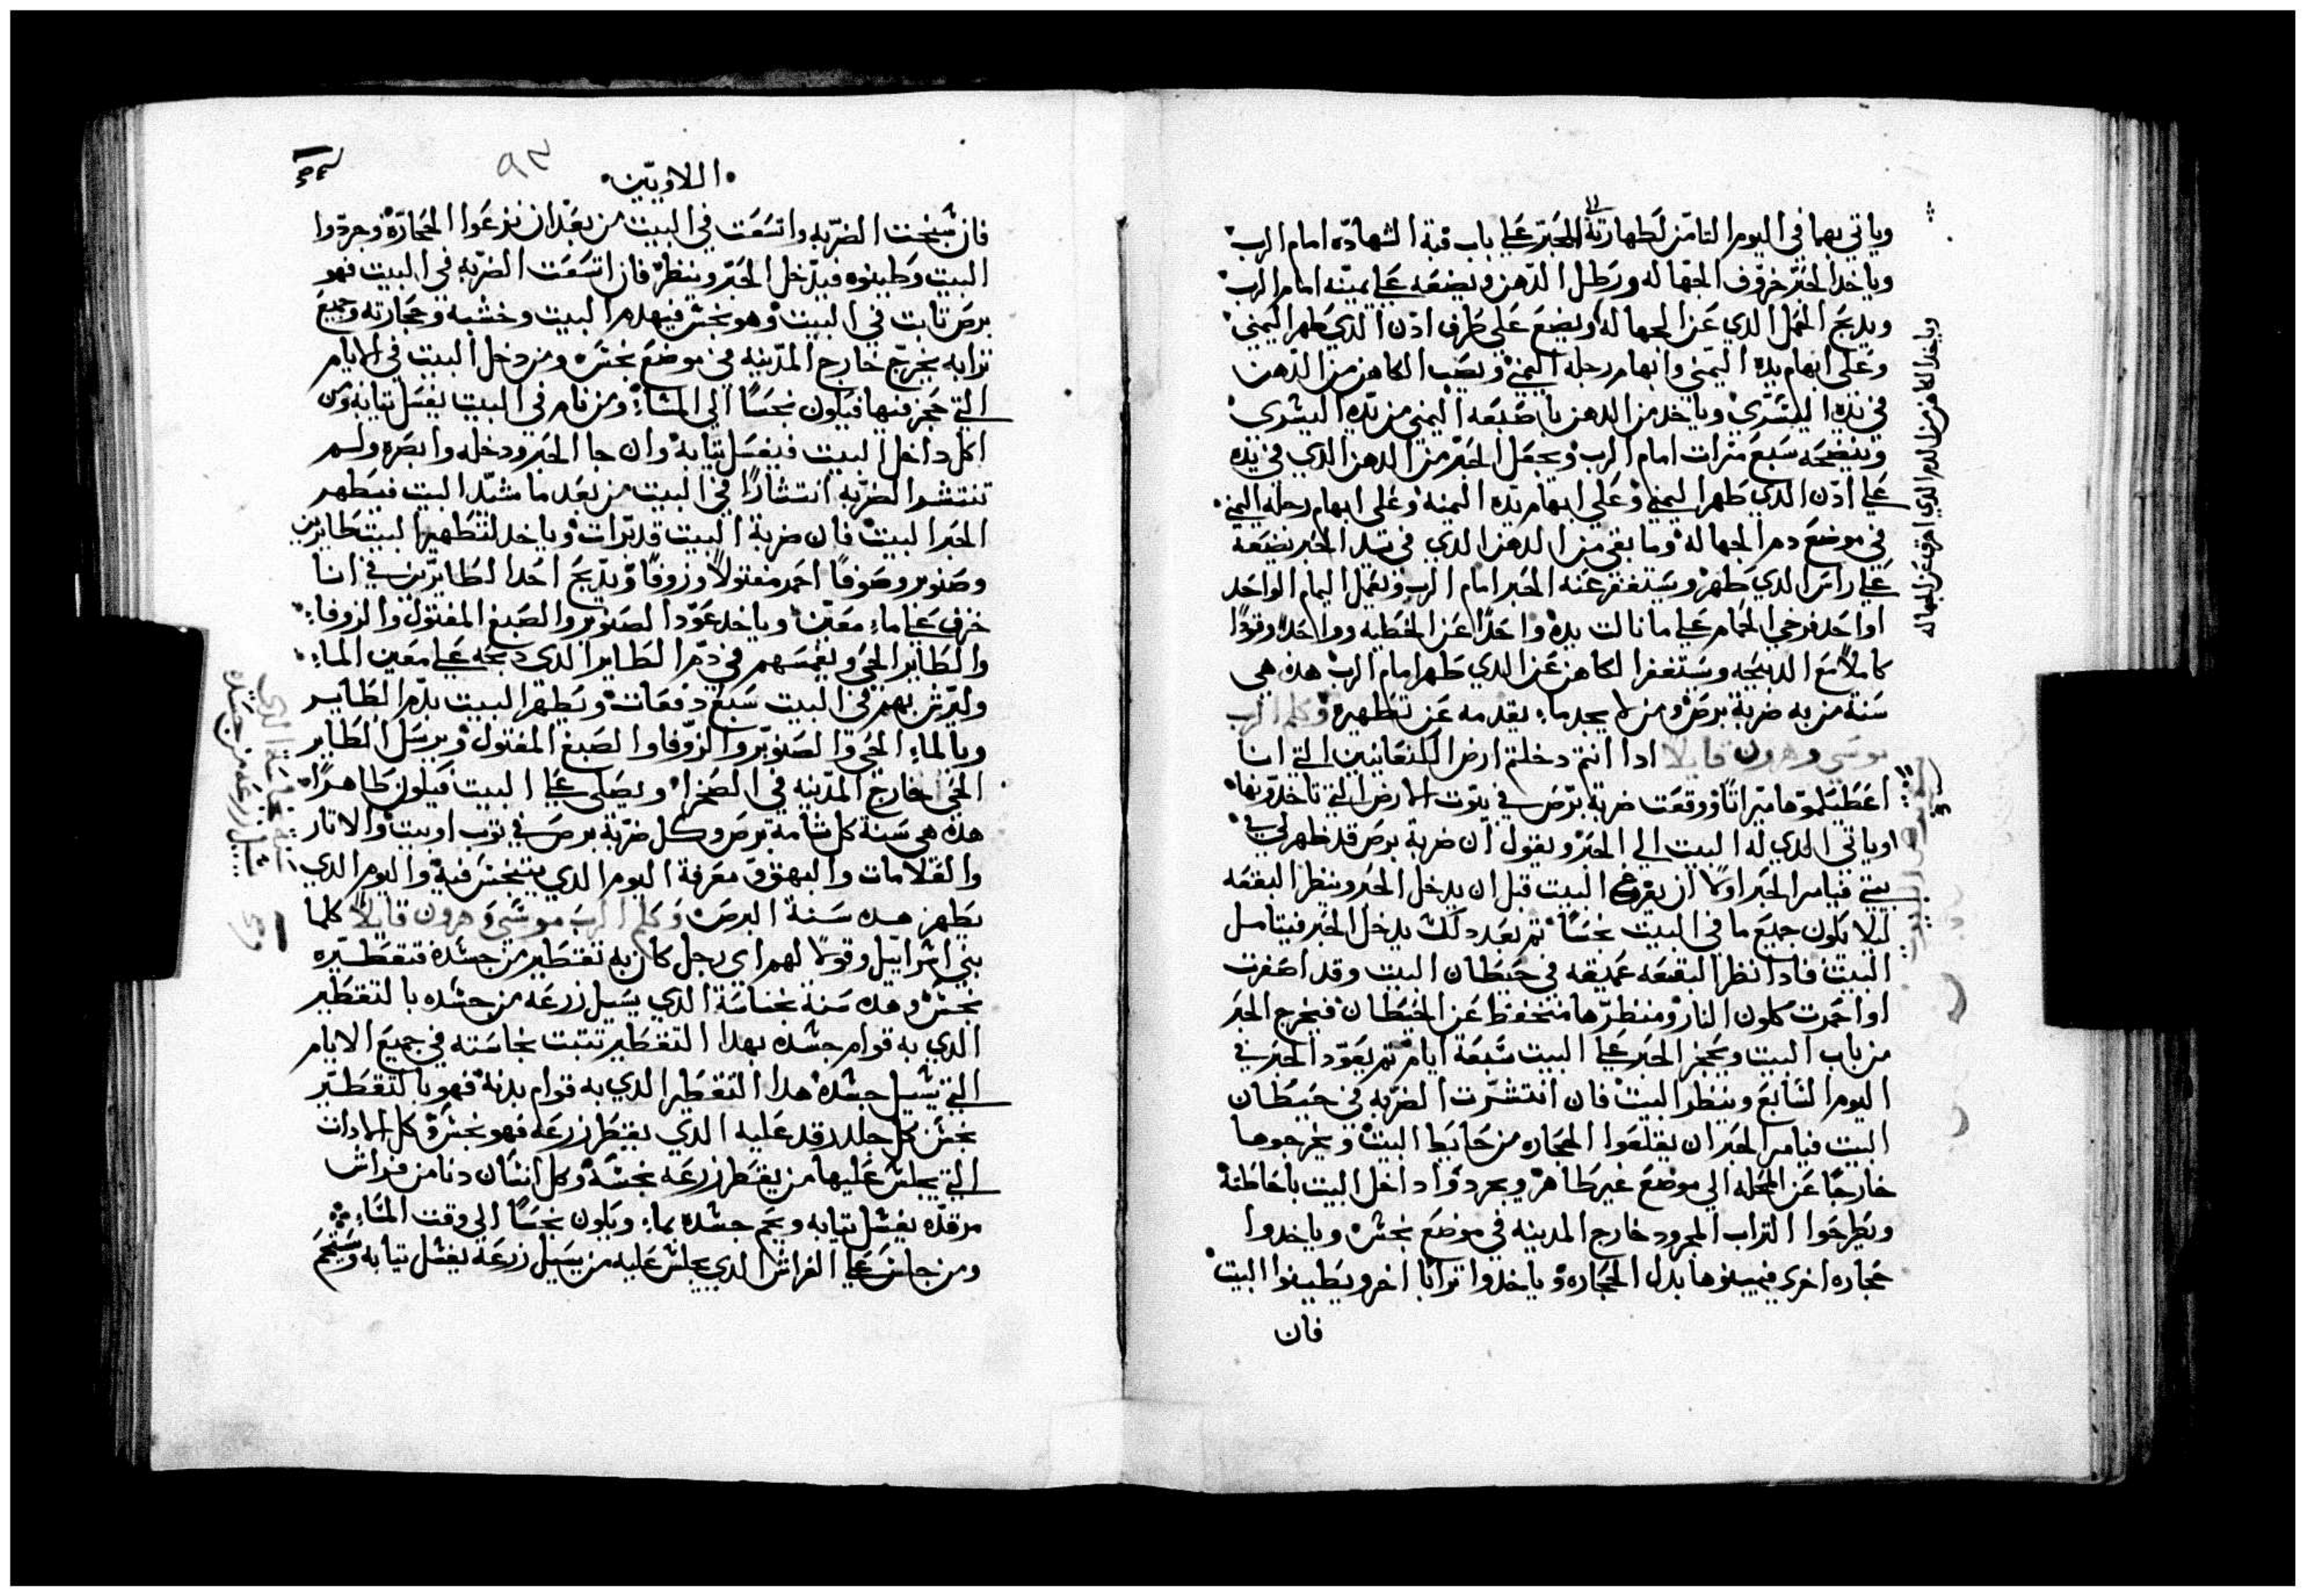 وياتي بهما في اليوم التامن لطهارته الي الحبر علي باب قبة الشهاده امام الرب
وياخد الحبر خروف الجهاله ورطل الدهن ويضعه علي يمينه امام الرب
ويدبح الحمل الدي عن الجهاله ويضع علي طرف ادن الدي طهر اليمني
وعلي ابهام يده اليمني وابهام رجله اليمني ويصب الكاهن من الدهن
في يده اليسري وياخد من الدهن باصبعه اليمني من يده اليسري
وينضحه سبع مرات امام الرب ويجعل الحبر من الدهن الدي في يده
علي ادن الدي طهر اليمني وعلي ابهام يده اليمنه وعلي ابهام رجله اليمني
في موضع دم الجهاله وما بقي من الدهن الدي في يد الحبر يضعه
علي راس الدي طهر ويستغفر عنه الحبر امام الرب ويعمل اليمام الواحد
او احد فرخي الحمام علي ما نالت يده واحدًا عن الخطيه وواحدًا وقودًا
كاملًا مع الدبيحه ويستغفر الكاهن عن الدي طهر امام الرب هده هي
سنة من به ضربة برص ومن لا يجد ما يقدمه عن تطهيره وكلم الرب
موسي وهرون قايلا ادا انتم دخلتم ارض الكنعانيين التي انا
اعطيكموها ميراتًا ووقعت ضربة برص في بيوت الارض التي تاخدونها
وياتي الدي له البيت الي الحبر ويقول ان ضربة برص قد ظهر لي في
بيتي فيامر الحبر اولا ان يفرغ البيت قبل ان يدخل الحبر وينظر البقعه
ليلا يكون جميع ما في البيت نجسًا تم بعد دلك يدخل الحبر فيتامل
البيت فادا نظر البقعه عميقه في حيطان البيت وقد اصفرت
او احمرت كلون النار ومنظرها منخفظ عن الحيطان فيخرج الحبر
من باب البيت ويحجز الحبر علي البيت سبعة ايام تم يعود الحبر في
اليوم السابع وينظر البيت فان انتشرت الضربه في حيطان
البيت فيامر الحبر ان يقلعوا الحجاره من حايط البيت ويخرجوها
خارجًا عن المحله الي موضع غير طاهر ويجردوا داخل البيت باحاطته
ويطرحوا التراب المجرود خارج المدينه في موضع نجس وياخدوا
حجاره اخري فيبينوها بدل الحجاره وياخدوا ترابا اخر ويطينوا البيت
فان
وياخد الكاهن من الدم الدي عن الجهاله
اللاويين
٩٣
فان شبخت الضربه واتسعت في البيت من بعد ان نزعوا الحجاره وجردوا
البيت وطينوه فيدخل الحبر وينظر فان اتسعت الضربه في البيت فهو
برص تابت في البيت وهو نجس فيهدم البيت وخشبه وحجارته وجميع
ترابه يخرج خارج المدينه في موضع نجس ومن دخل البيت في الايام
التي حجز فيها فيكون نجسًا الي المساء ومن نام في البيت يغسل تيابه ومن
اكل داخل البيت فيغسل تيابه وان جا الحبر ودخله وابصره ولم
تنتشر الضربه انتشارًا في البيت من بعد ما شيد البيت فيطهر
الحبر البيت فان ضربة البيت قد برات وياخد لتطهير البيت طايرين
وصنوبر وصوفًا احمر مفتولًا وزوفًا ويدبح احد الطايرين في انا
خزف علي ماء معين وياخد عود الصنوبر والصبغ المفتول والزوفا
والطاير الحي ويغمسهم في دم الطاير الدي دبحه علي معين الماء
وليرش بهم في البيت سبع دفعات ويطهر البيت بدم الطاير
وبالماء الحي والصنوبر والزوفا والصبغ المفتول ويرسل الطاير
الحي خارج المدينه في الصحرا ويصلي علي البيت فيكون طاهرًا
هده هي سنة كل شامة برص وكل ضربة برص في توب او بيت والاتار
والعلامات والبهق ومعرفة اليوم الدي يتنجس فيه واليوم الدي
يطهر هده سنة البرص وكلم الرب موسي وهرون قايلًا كلما
بني اسراييل وقولا لهم اي رجل كان به تقطير من جسده فتقطيره
نجس وهده سنة نجاسة الدي يسيل زرعه من جسده بالتقطير
الدي به قوام جسده بهدا التقطير تتبت نجاسته في جميع الايام
التي يسيل جسده هدا التقطير الدي به قوام بدنه فهو بالتقطير
نجس كل جلد رقد عليه الدي يقطر زرعه فهو نجس وكل الادات
التي يجلس عليها من يقطر زرعه نجسه وكل انسان دنا من فراش
مرقده يغسل تيابه ويحم جسده بماء ويكون نجسًا الي وقت المساء
ومن جلس علي الفراش الدي يجلس عليه من يسيل زرعه يغسل تيابه ويستحم
يسيل زرعه من جسده